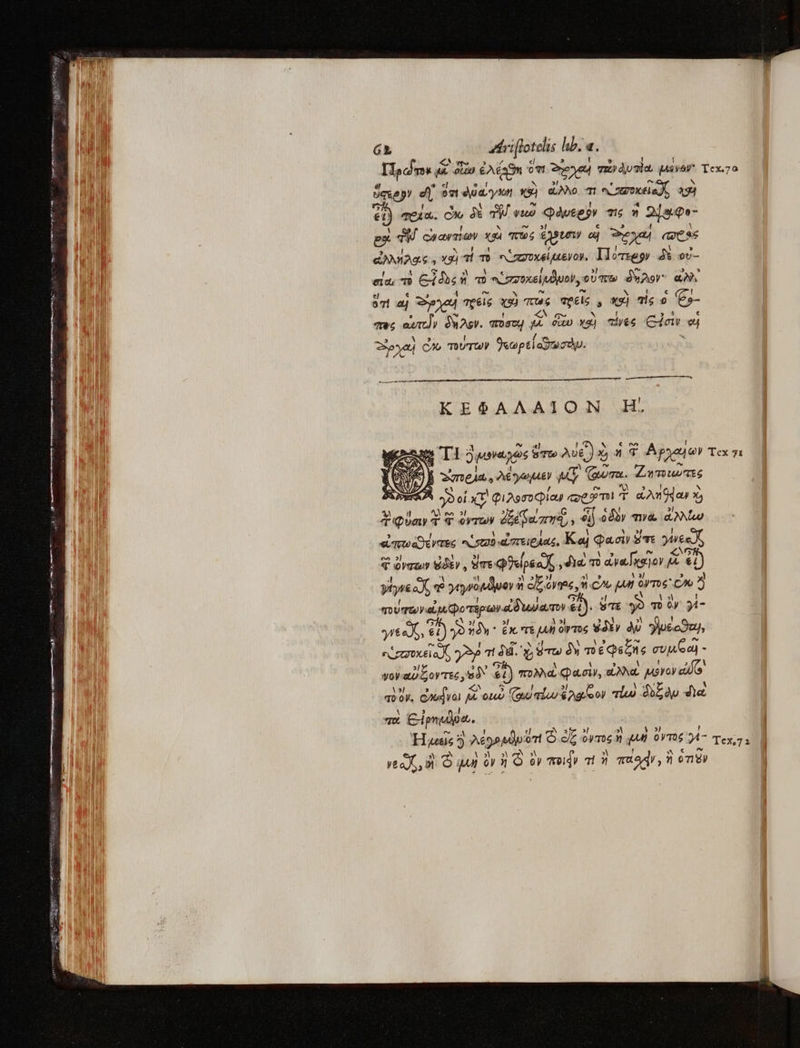 62 Aristotelis lib. α.
Πρῶτον μὲν οὖν ἐλέχθη ὅτι ἀρχαὶ τἀναντία μόνον· Tex.70
ὕστερον δ' ὅτι ἀνάγκη καὶ ἄλλο τι ὑποκεῖσθαι καὶ
εἶναι τρία. ἐκ δὲ τῶν νυῦ φανερὸν τις ἡ διαφο-
ρὰ τῶν ἐναντίων καὶ πῶς ἔχουσιν αἱ ἀρχαὶ πρὸς
ἀλλήλας, καὶ τί τὸ ὑποκείμενον. Πότερον δὲ οὐ-
σία τὸ εἶδος ἢ τὸ ὑποκείμενον, οὔπω δῆλον· ἀλλ'
ὅτι αἱ ἀρχαὶ τρεῖς καὶ πῶς τρεῖς, καὶ τίς ὁ τρό-
πος αὐτῶν δῆλον. πόσαι μὲν οὖν καὶ τίνες εἰσὶν αἱ
ἀρχαὶ ἐκ τούτων θεωρείσθωσαν.
ΚΕΦΑΛΑΙΟΝ Η'.
ΤΙ δὲ μοναχῶς οὕτω λύεται καὶ ἡ τῶν Ἀρχαίων Tex 71
ἀπορία, λέγωμεν μετὰ ταῦτα. Ζητοῦντες
γὰρ οἱ κατὰ φιλοσοφίαν πρῶτοι τὴν ἀλήθειαν καὶ
τὴν φύσιν τὴν τῶν ὄντων ἐξετράπησαν, εἰς ὁδὸν τινα ἄλλην
ἀπωσθέντες ὑπὸ ἀπειρίας, Καὶ φασὶν οὔτε γίνεσθαι
τῶν ὄντων οὐδὲν, οὔτε φθείρεσθαι, διὰ τὸ ἀναγκαῖον μὲν εἶναι
γίγνεσθαι τὸ γιγνόμενον ἢ ἐξ ὄντος, ἢ ἐκ μὴ ὄντος· ἐκ δὲ
τούτων ἀμφοτέρων ἀδύνατον εἶναι. οὔτε γὰρ τὸ ὂν γί-
γνεσθαι, εἶναι γὰρ ἤδη· ἔκ τε μὴ ὄντος οὐδὲν ἂν γενέσθαι,
ὑποκεῖσθαι γὰρ τι δεῖ. καὶ οὕτω δὴ τὸ ἐφεξῆς συμβαῖ-
νον αὔξοντες, οὐδ' εἶναι πολλὰ φασὶν, ἀλλὰ μόνον αὐτὸ
τὸ ὄν. ἐκεῖνοι μὲν οὖν ταύτην ἔλαβον τὴν δόξαν διὰ
τὰ εἰρημένα.
Ἡμεῖς δὲ λέγομεν ὅτι τὸ ἐξ ὄντος ἢ μὴ ὄντος γί- Tex.72
νεσθαι, ἢ τὸ μὴ ὂν ἢ τὸ ὂν ποιεῖν τι ἢ πάσχειν, ἢ ὁτιοῦν